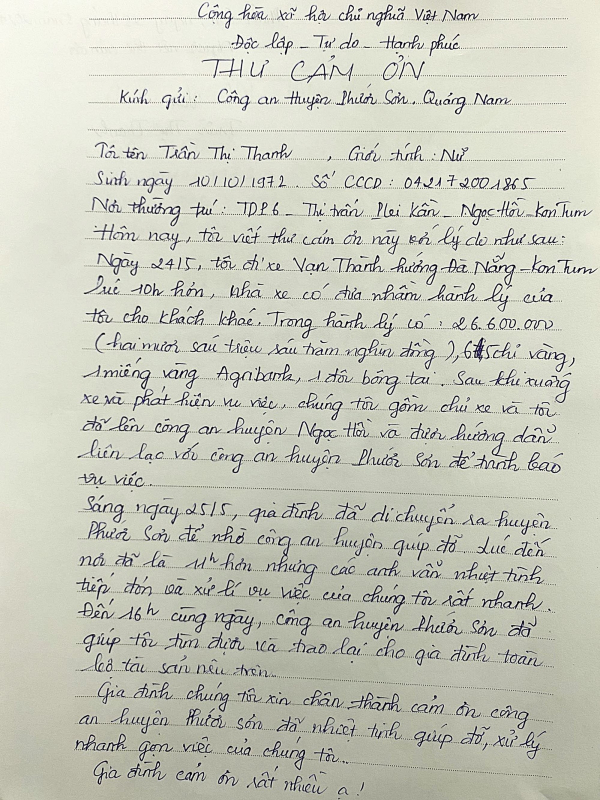 Cộng hòa xã hội chủ nghĩa Việt Nam
Độc lập - Tự do - Hạnh phúc
THƯ CẢM ƠN
Kính gửi: Công an Huyện Phước Sơn. Quảng Nam
Tôi tên Trần Thị Thanh , Giới tính: Nữ
Sinh ngày 10/10/1972. Số CCCD: 042172001865
Nơi thường trú: TDP6 - Thị trấn Plei Kần - Ngọc Hồi - Kon Tum
Hôm nay, tôi viết thư cảm ơn này với lý do như sau:
Ngày 24/5, tôi đi xe Vạn Thành hướng Đà Nẵng - Kon Tum
lúc 10h hơn, nhà xe có đưa nhầm hành lý của
tôi cho khách khác. Trong hành lý có: 26.600.000
(hai mươi sáu triệu sáu trăm nghìn đồng), chỉ vàng,
1 miếng vàng Agribank, 1 đôi bông tai. Sau khi xuống
xe và phát hiện vụ việc, chúng tôi gồm chủ xe và tôi
đã lên công an huyện Ngọc Hồi và được hướng dẫn
liên lạc với công an huyện Phước Sơn để trình báo
vụ việc.
Sáng ngày 25/5, gia đình đã di chuyển ra huyện
Phước Sơn để nhờ công an huyện giúp đỡ. Lúc đến
nơi đã là 11h hơn nhưng các anh vẫn nhiệt tình
tiếp đón và xử lí vụ việc của chúng tôi rất nhanh.
Đến 16h cùng ngày, công an huyện Phước Sơn đã
giúp tôi tìm được và trao lại cho gia đình toàn
bộ tài sản nêu trên.
Gia đình chúng tôi xin chân thành cảm ơn công
an huyện Phước Sơn đã nhiệt tình giúp đỡ, xử lý
nhanh gọn việc của chúng tôi.
Gia đình cảm ơn rất nhiều ạ!